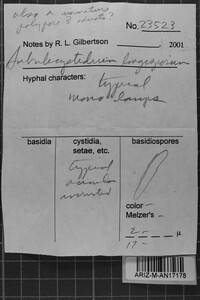 also a immature
polypore & educts?
No. 23523
Notes by R. L. Gilbertson 2001
Subulicystidium longisporum
Hyphal characters: typical
mono clamps
basidia
cystidia,
setae, etc.
basidiospores
typical
color –
Melzer's –
2 – μ
17 –
ARIZ-M-AN17178